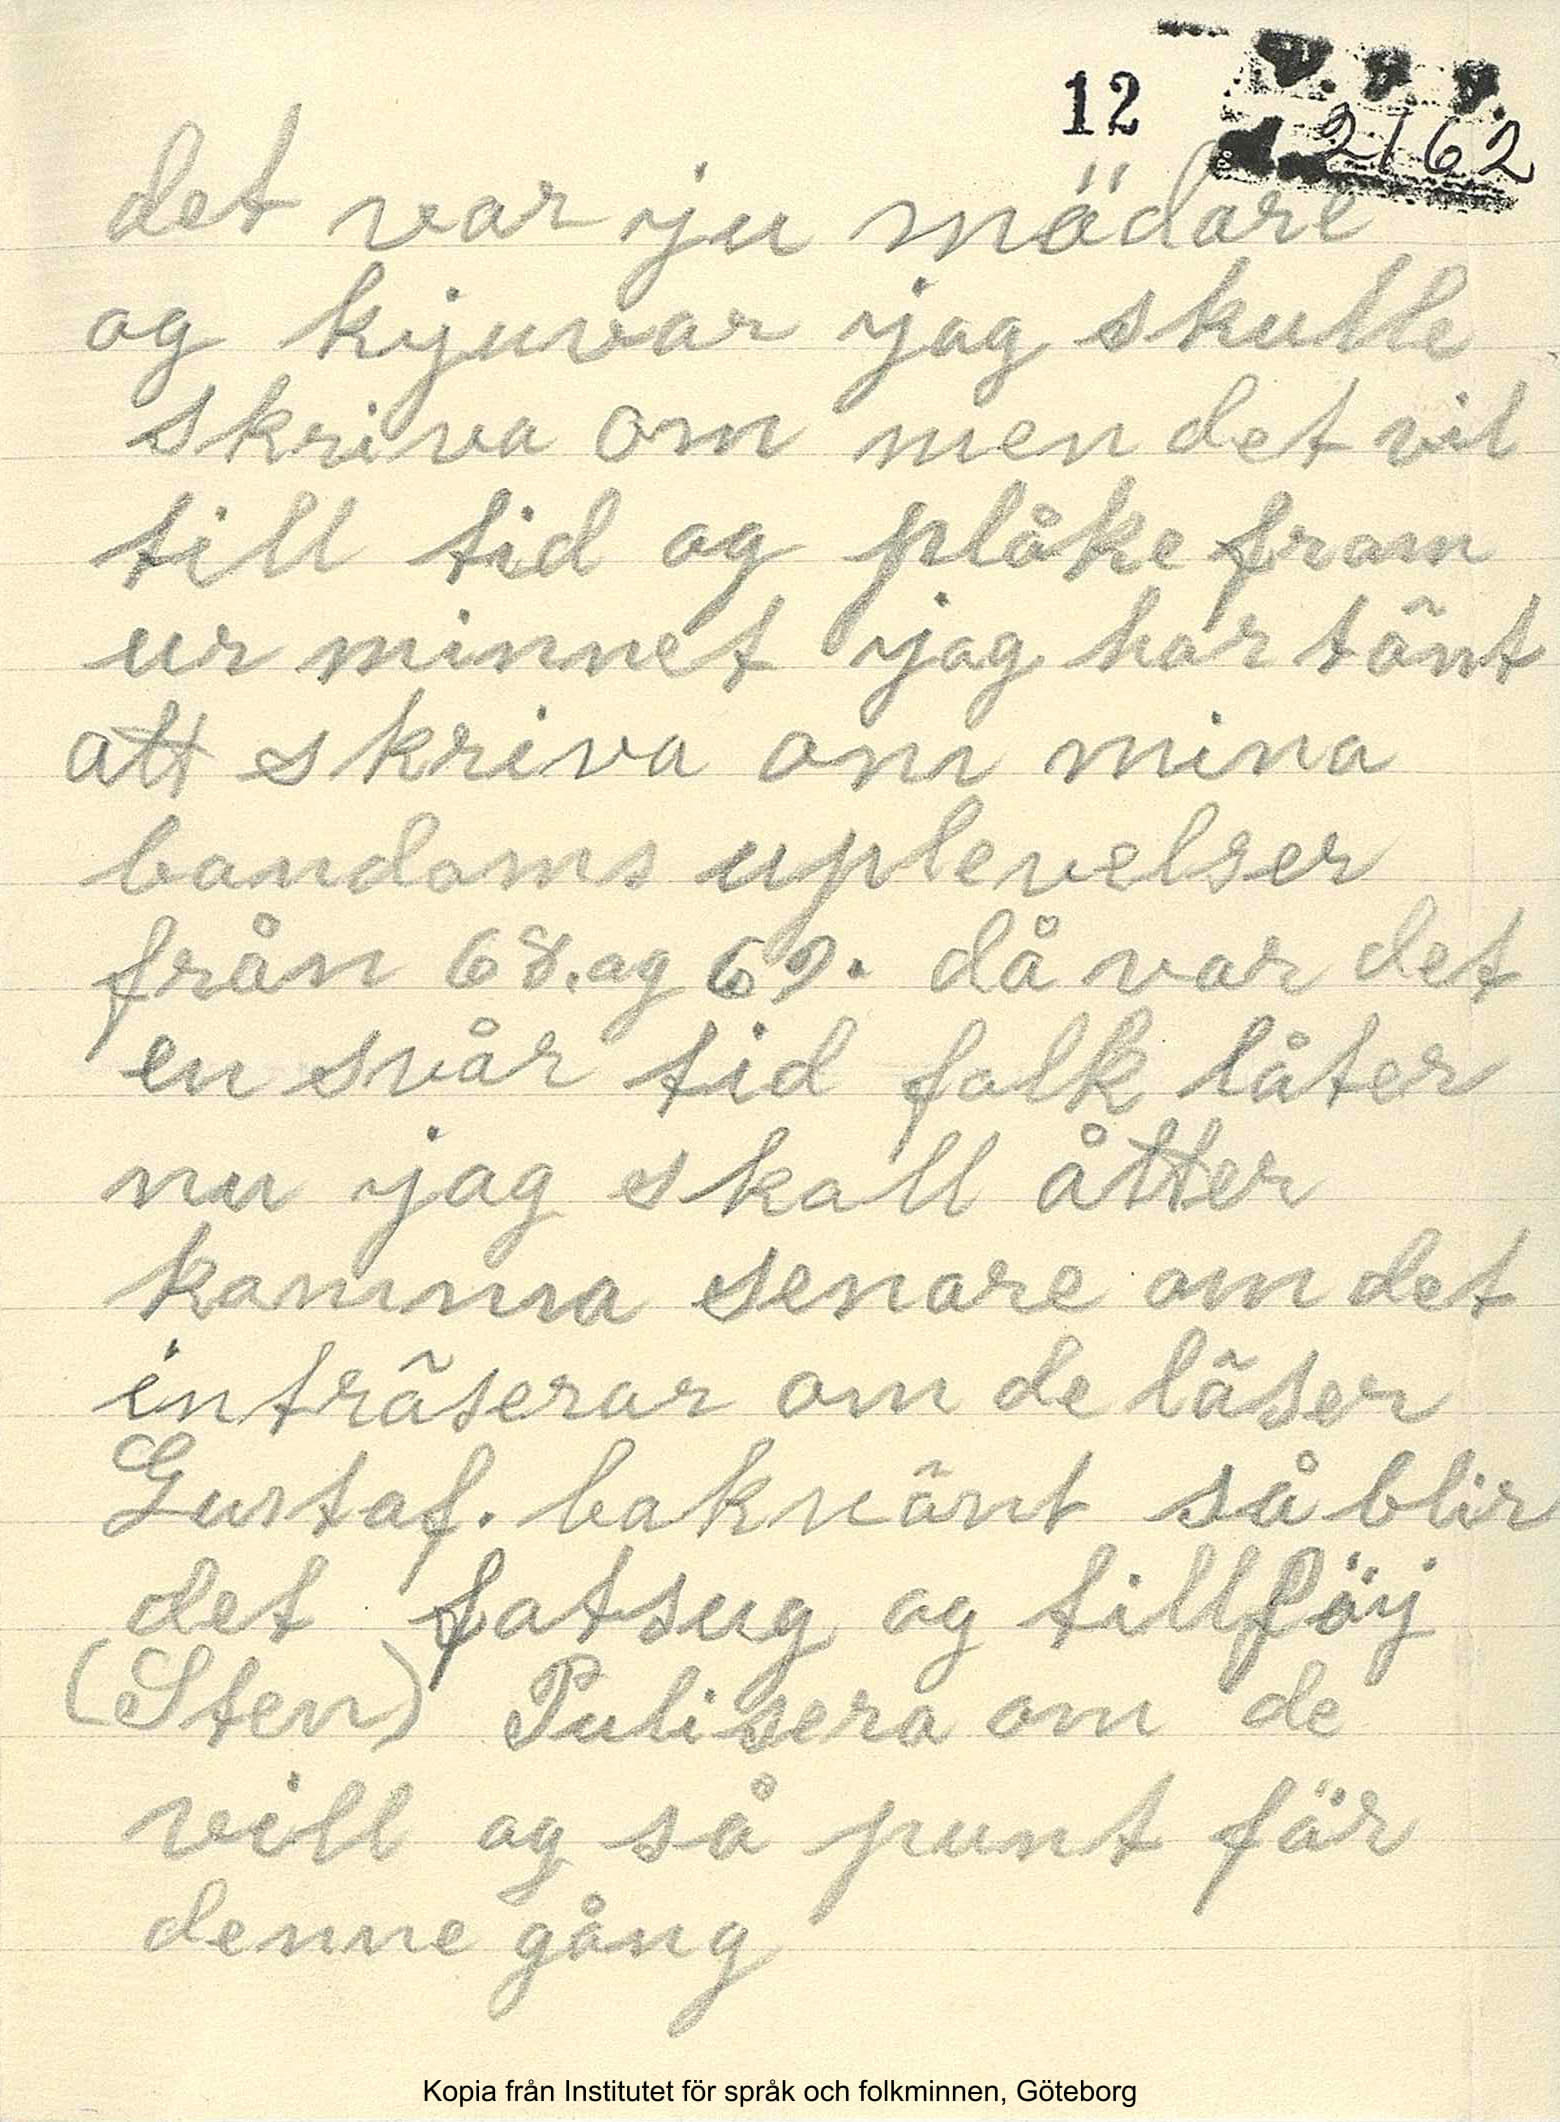 12
2162
det var ju mödare
og kjuvar jag skulle
skriva om men det vil
till tid og plåke fram
ur minnet jag har tänt
att skriva om mina
bandoms uplevelser
från 68. og 69. då var det
en svår tid folk låter
nu jag skall åtter
komma senare om det
inträserar om de läser
Gustaf. baknänt så blir
det fatsug og tillföj
(Sten) Pulisera om de
vill og så punt för
denne gång
Kopia från Institutet för språk och folkminnen, Göteborg